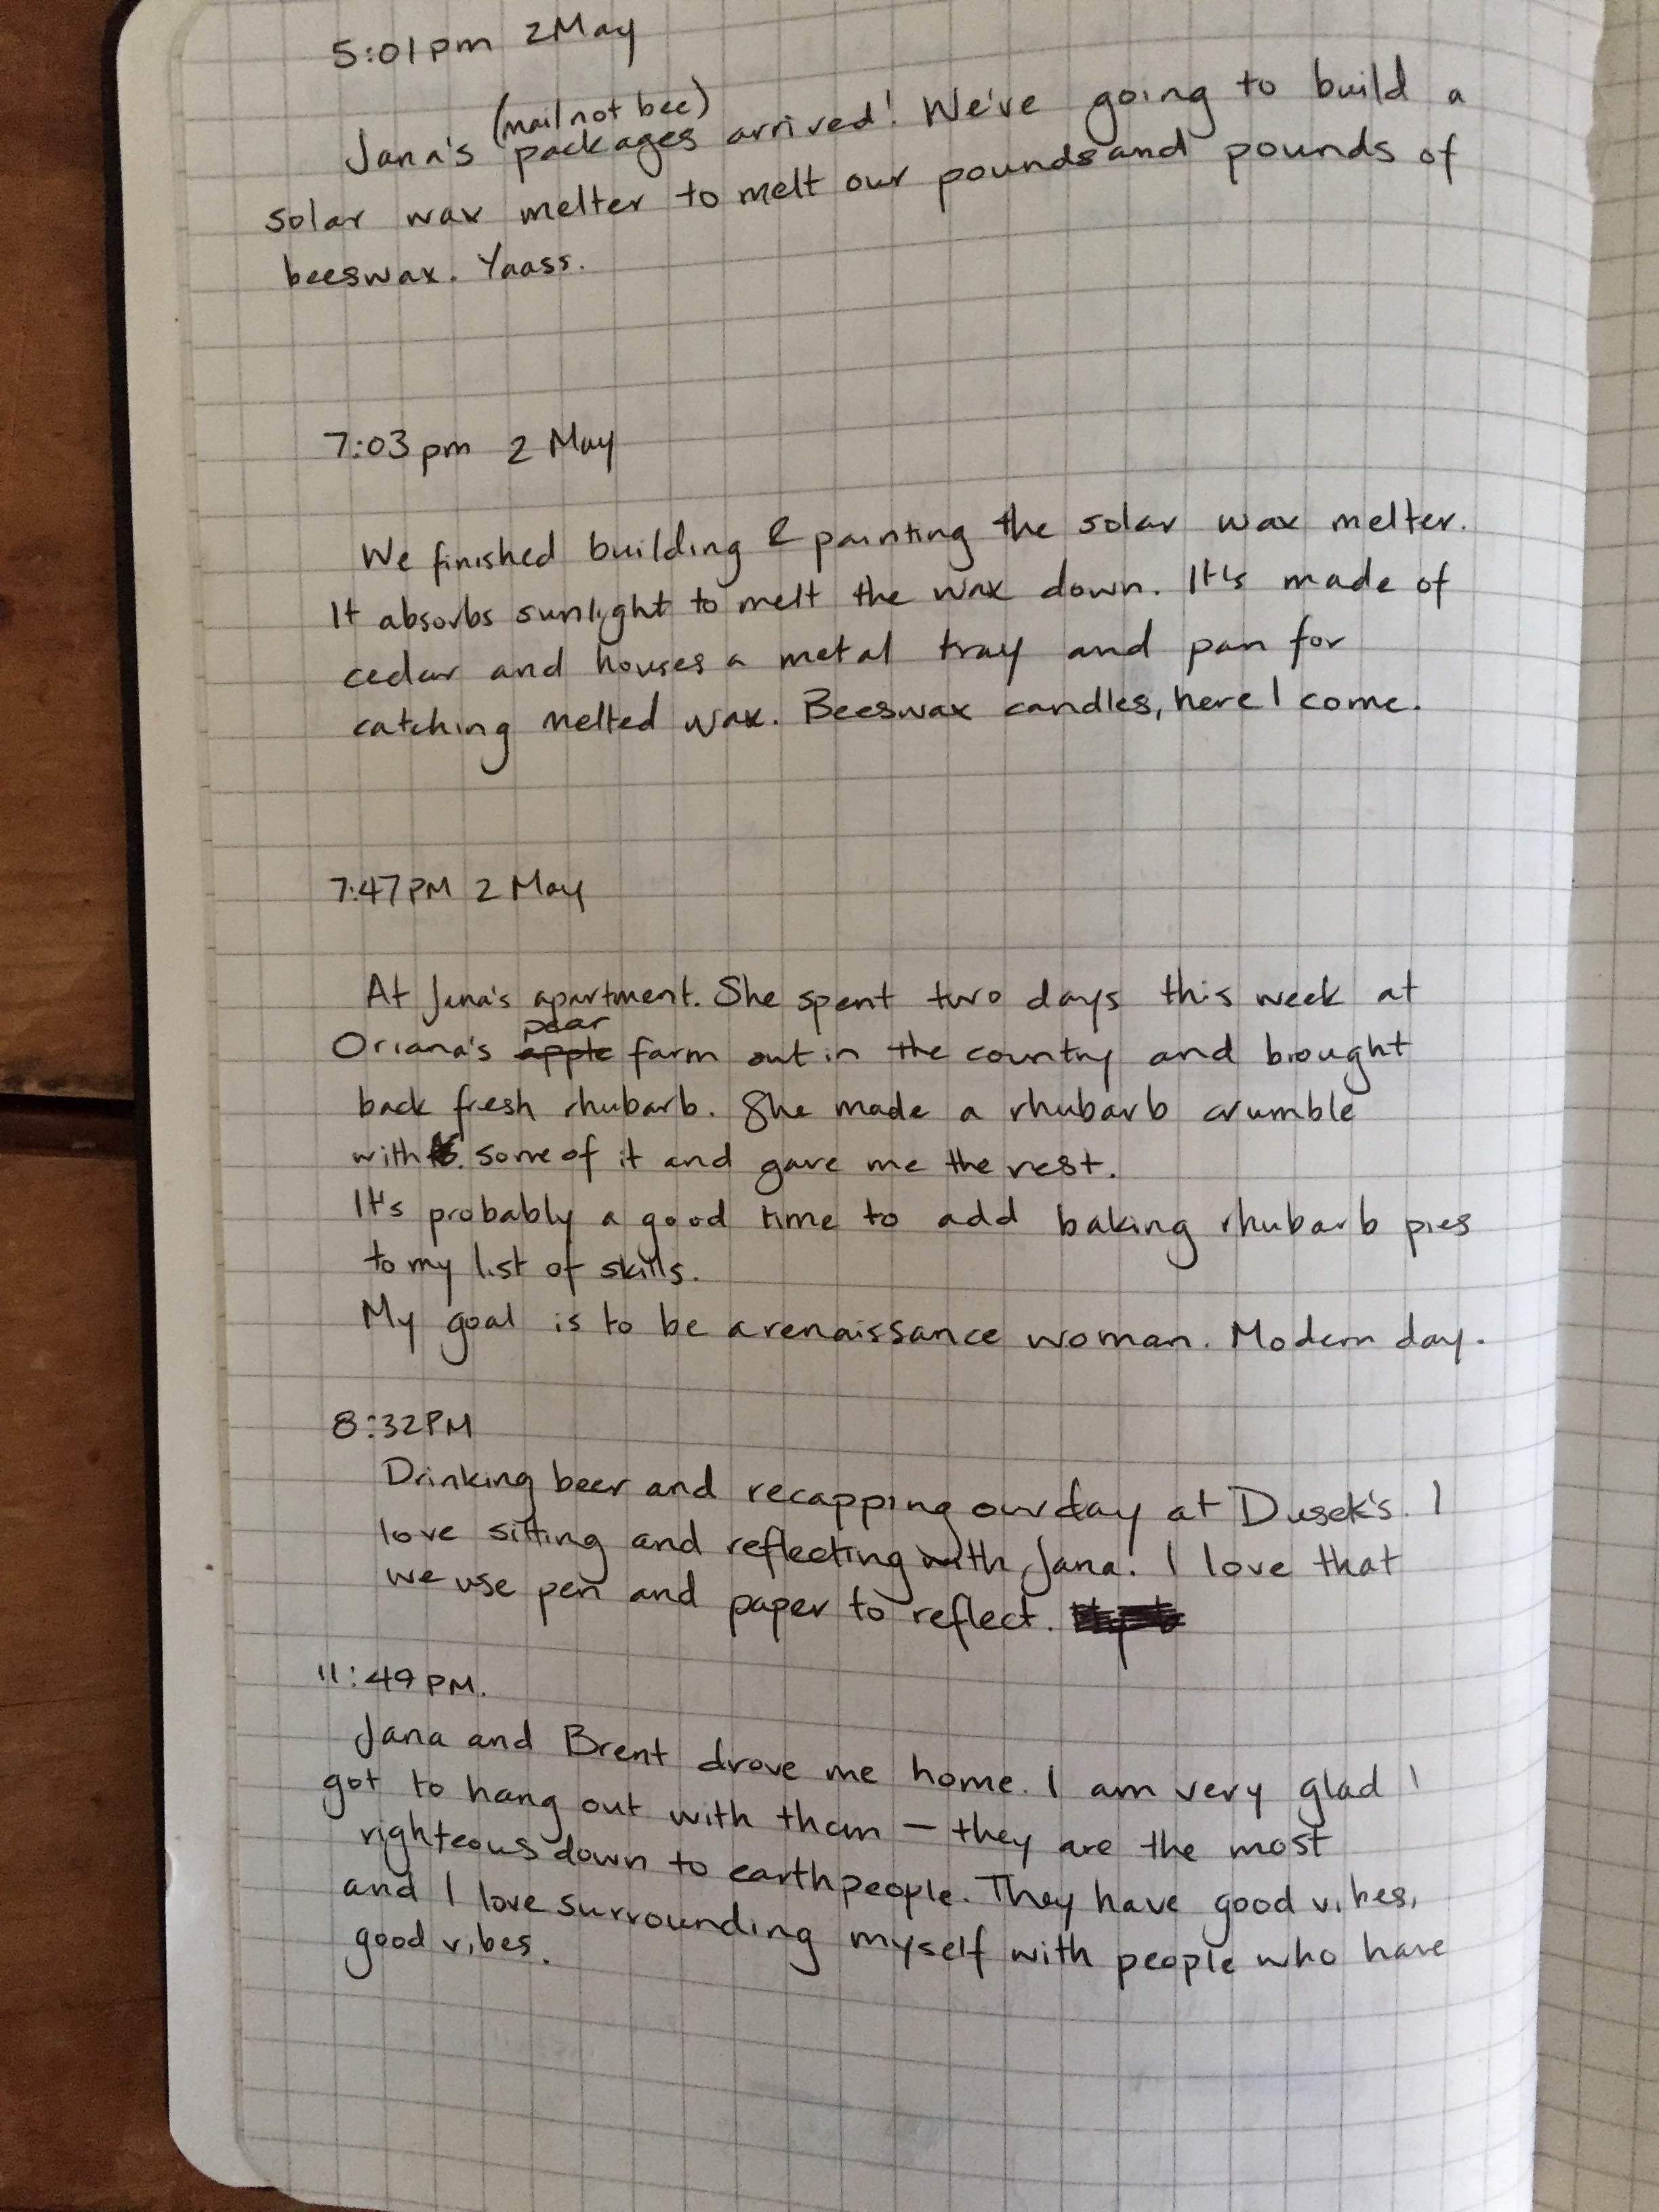 5:01pm 2 May
(mail not bee)
Jana's packages arrived! We've going to build a
solar wax melter to melt our pounds and pounds of
beeswax. Yaass.
7:03pm 2 May
We finished building & painting the solar wax melter.
It absorbs sunlight to melt the wax down. It's made of
cedar and houses a metal tray and pan for
catching melted wax. Beeswax candles, here I come.
7:47PM 2 May
At Jana's apartment. She spent two days this week at
pear
Oriana's apple farm out in the country and brought
back fresh rhubarb. She made a rhubarb crumble
with some of it and gave me the rest.
It's probably a good time to add baking rhubarb pies
to my list of skills.
My goal is to be a renaissance woman. Modern day.
8:32PM
Drinking beer and recapping our day at Dusek's. I
love sitting and reflecting with Jana. I love that
we use pen and paper to reflect.
11:49PM.
Jana and Brent drove me home. I am very glad I
got to hang out with them — they are the most
righteous down to earth people. They have good vibes,
and I love surrounding myself with people who have
good vibes.